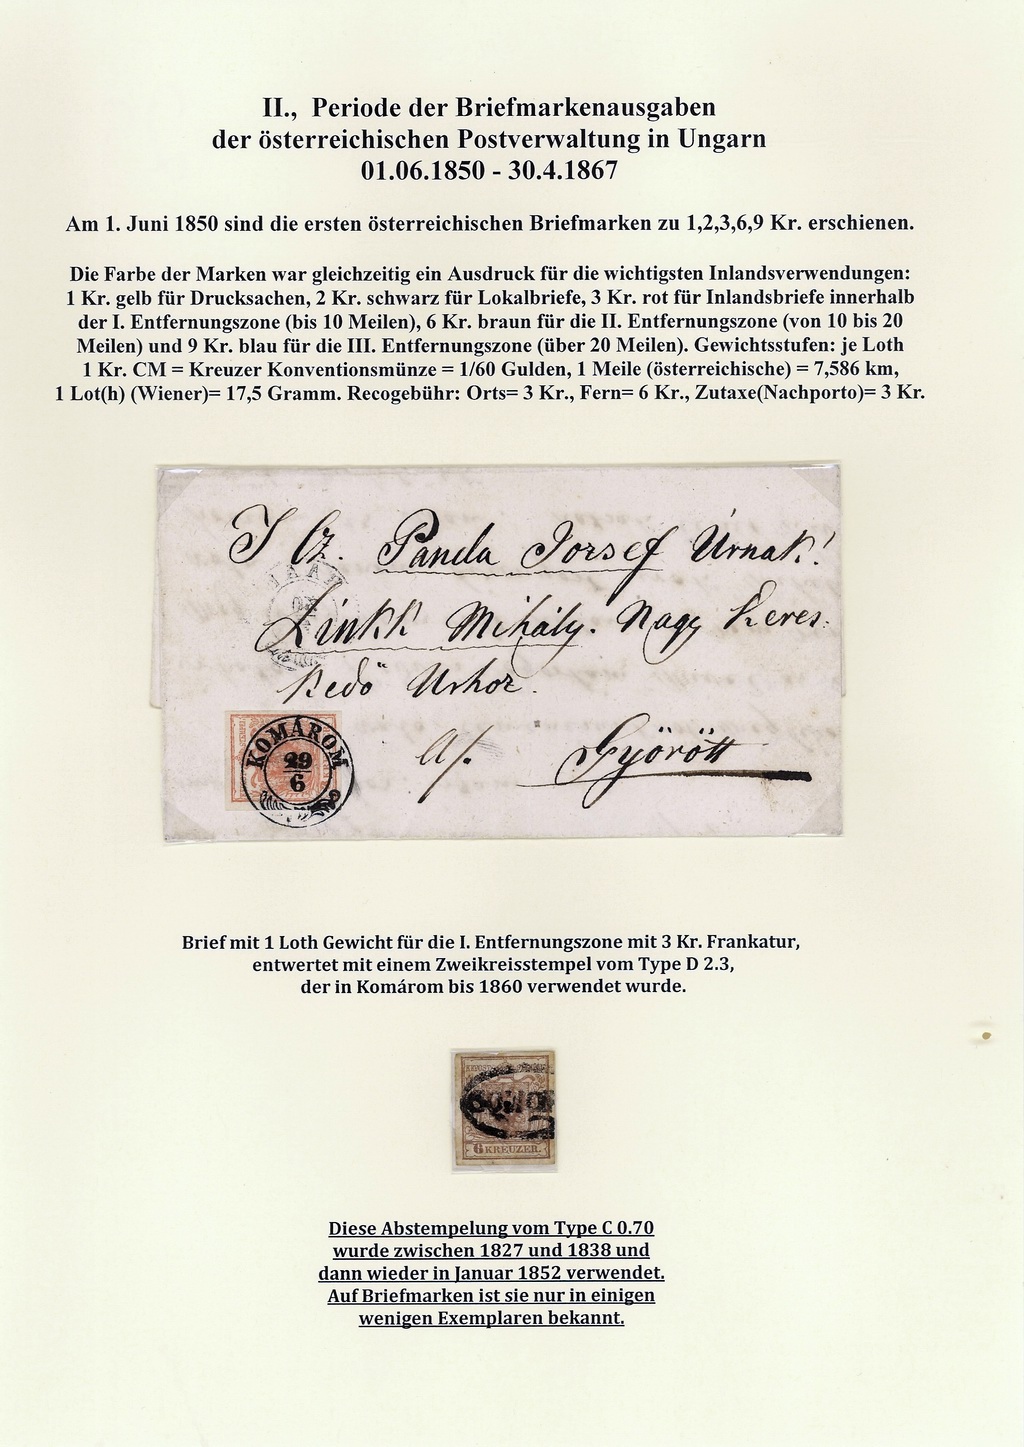 II., Periode der Briefmarkenausgaben
der österreichischen Postverwaltung in Ungarn
01.06.1850 - 30.4.1867
Am 1. Juni 1850 sind die ersten österreichischen Briefmarken zu 1,2,3,6,9 Kr. erschienen.
Die Farbe der Marken war gleichzeitig ein Ausdruck für die wichtigsten Inlandsverwendungen:
1 Kr. gelb für Drucksachen, 2 Kr. schwarz für Lokalbriefe, 3 Kr. rot für Inlandsbriefe innerhalb
der I. Entfernungszone (bis 10 Meilen), 6 Kr. braun für die II. Entfernungszone (von 10 bis 20
Meilen) und 9 Kr. blau für die III. Entfernungszone (über 20 Meilen). Gewichtsstufen: je Loth
1 Kr. CM = Kreuzer Konventionsmünze = 1/60 Gulden, 1 Meile (österreichische) = 7,586 km,
1 Lot(h) (Wiener)= 17,5 Gramm. Recogebühr: Orts= 3 Kr., Fern= 6 Kr., Zutaxe(Nachporto)= 3 Kr.
Panda Jozsef Úrnak!
Linkk Mihály. Nagy Keres:
kedö Urhoz.
a/. Györött
KOMÁROM
29
6
Brief mit 1 Loth Gewicht für die I. Entfernungszone mit 3 Kr. Frankatur,
entwertet mit einem Zweikreisstempel vom Type D 2.3,
der in Komárom bis 1860 verwendet wurde.
6 KREUZER.
Diese Abstempelung vom Type C 0.70
wurde zwischen 1827 und 1838 und
dann wieder in Januar 1852 verwendet.
Auf Briefmarken ist sie nur in einigen
wenigen Exemplaren bekannt.